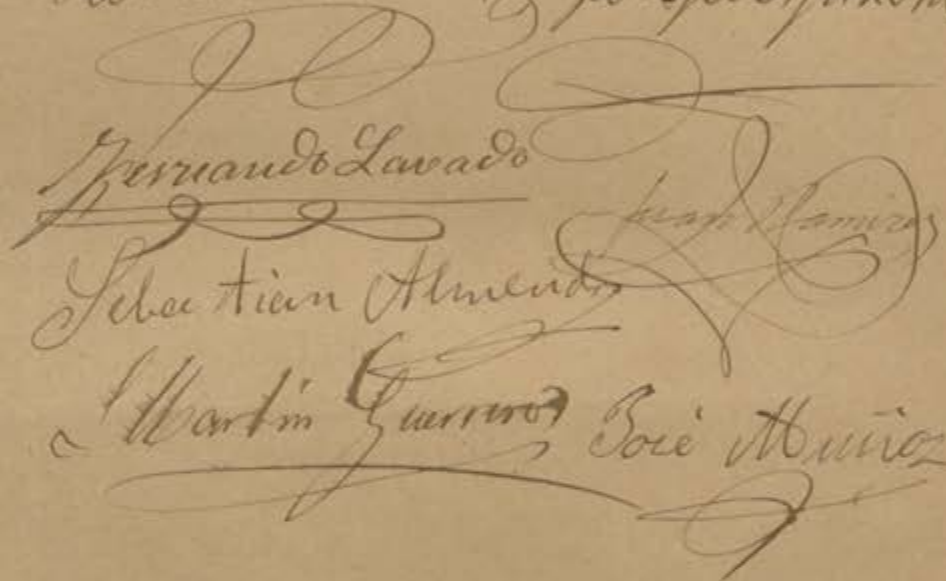 Fernando Lavado
Juan Ramirez
Sebastian Almendro
Martin Guerrero
José Muñoz